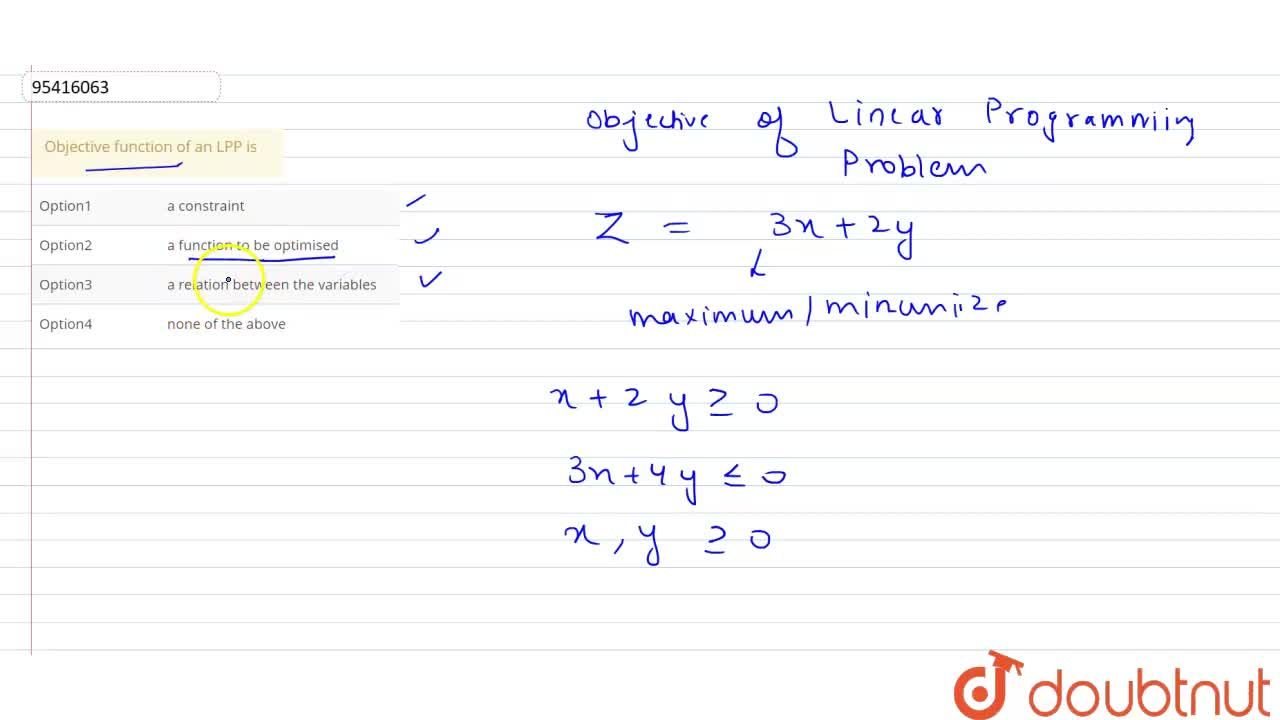 95416063
Objective function of an LPP is
Option1 a constraint
Option2 a function to be optimised
Option3 a relation between the variables
Option4 none of the above
Objective of Linear Programmiing
Problem
Z = 3x + 2y
maximum / minimize
x + 2y ≥ 0
3x + 4y ≤ 0
x, y ≥ 0
doubtnut